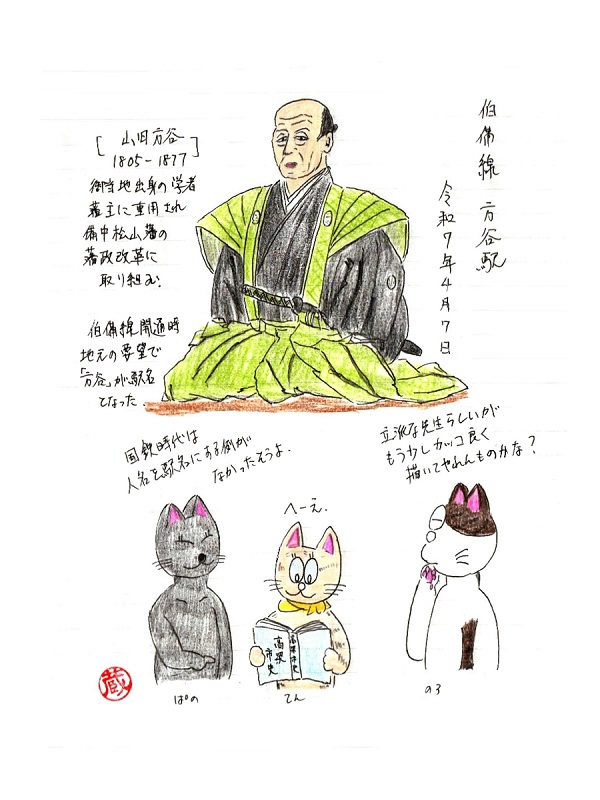 伯備線 方谷駅
令和7年4月7日
[山田方谷
1805-1877]
御当地出身の学者
藩主に重用され
備中松山藩の
藩政改革に
取り組む.
伯備線開通時
地元の要望で
「方谷」が駅名
となった.
国鉄時代は
人名を駅名にする例が
なかったそうよ.
へーえ.
立派な先生らしいが
もう少しカッコ良く
描いてやれんものかな?
高梁市史
高梁市史
蔵
ぱの
てん
のろ